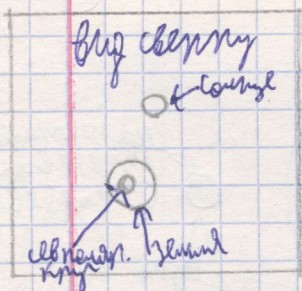 вид сверху
солнце
сев поляр.
круг
земля